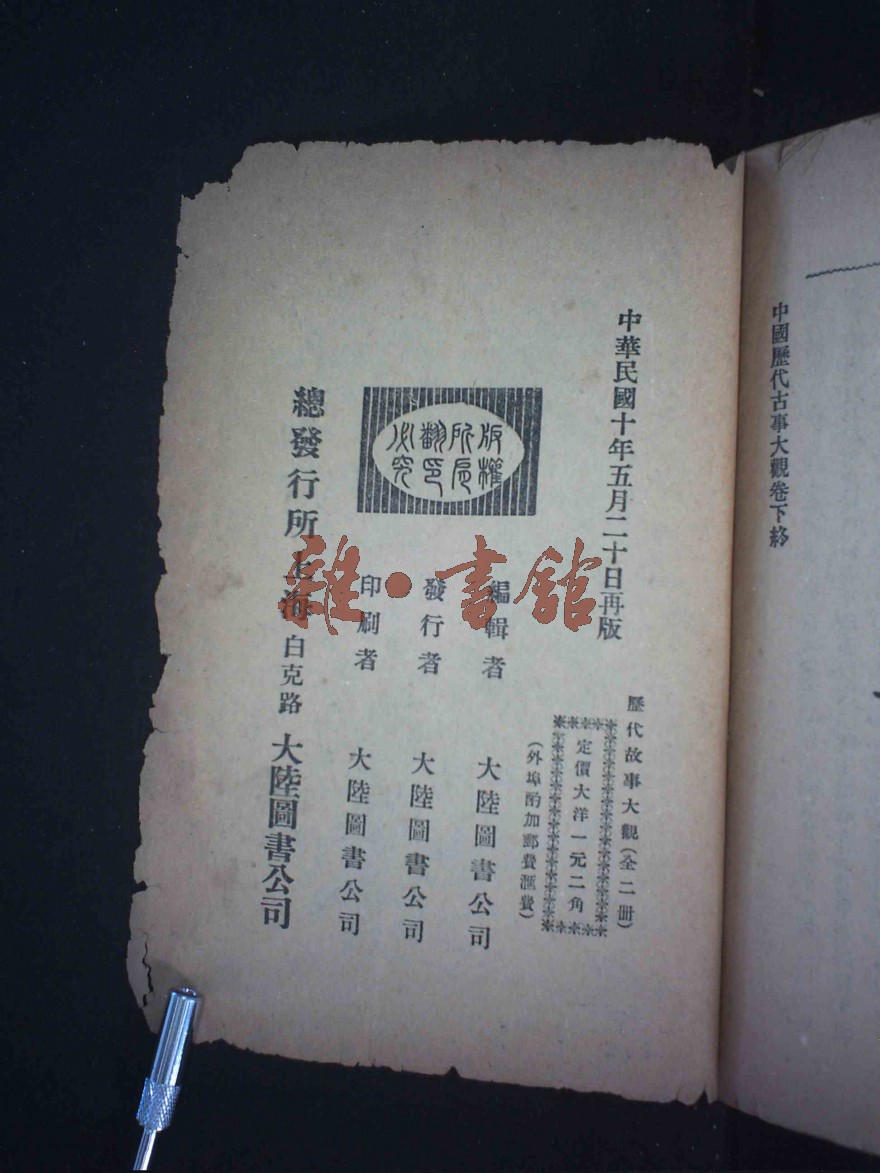 中國歷代古事大觀卷下終
中華民國十年五月二十日再版
歷代故事大觀(全二冊)
定價大洋一元二角
(外埠酌加郵費滙費)
版權
所有
翻印
必究
編輯者 大陸圖書公司
發行者 大陸圖書公司
印刷者 大陸圖書公司
總發行所 上海白克路 大陸圖書公司
雜·書館